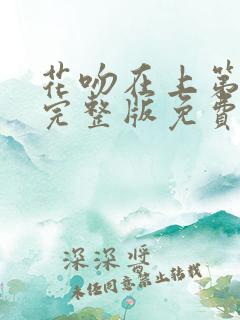 花吻在上第
完整版免费
深深酱
未经同意禁止转载